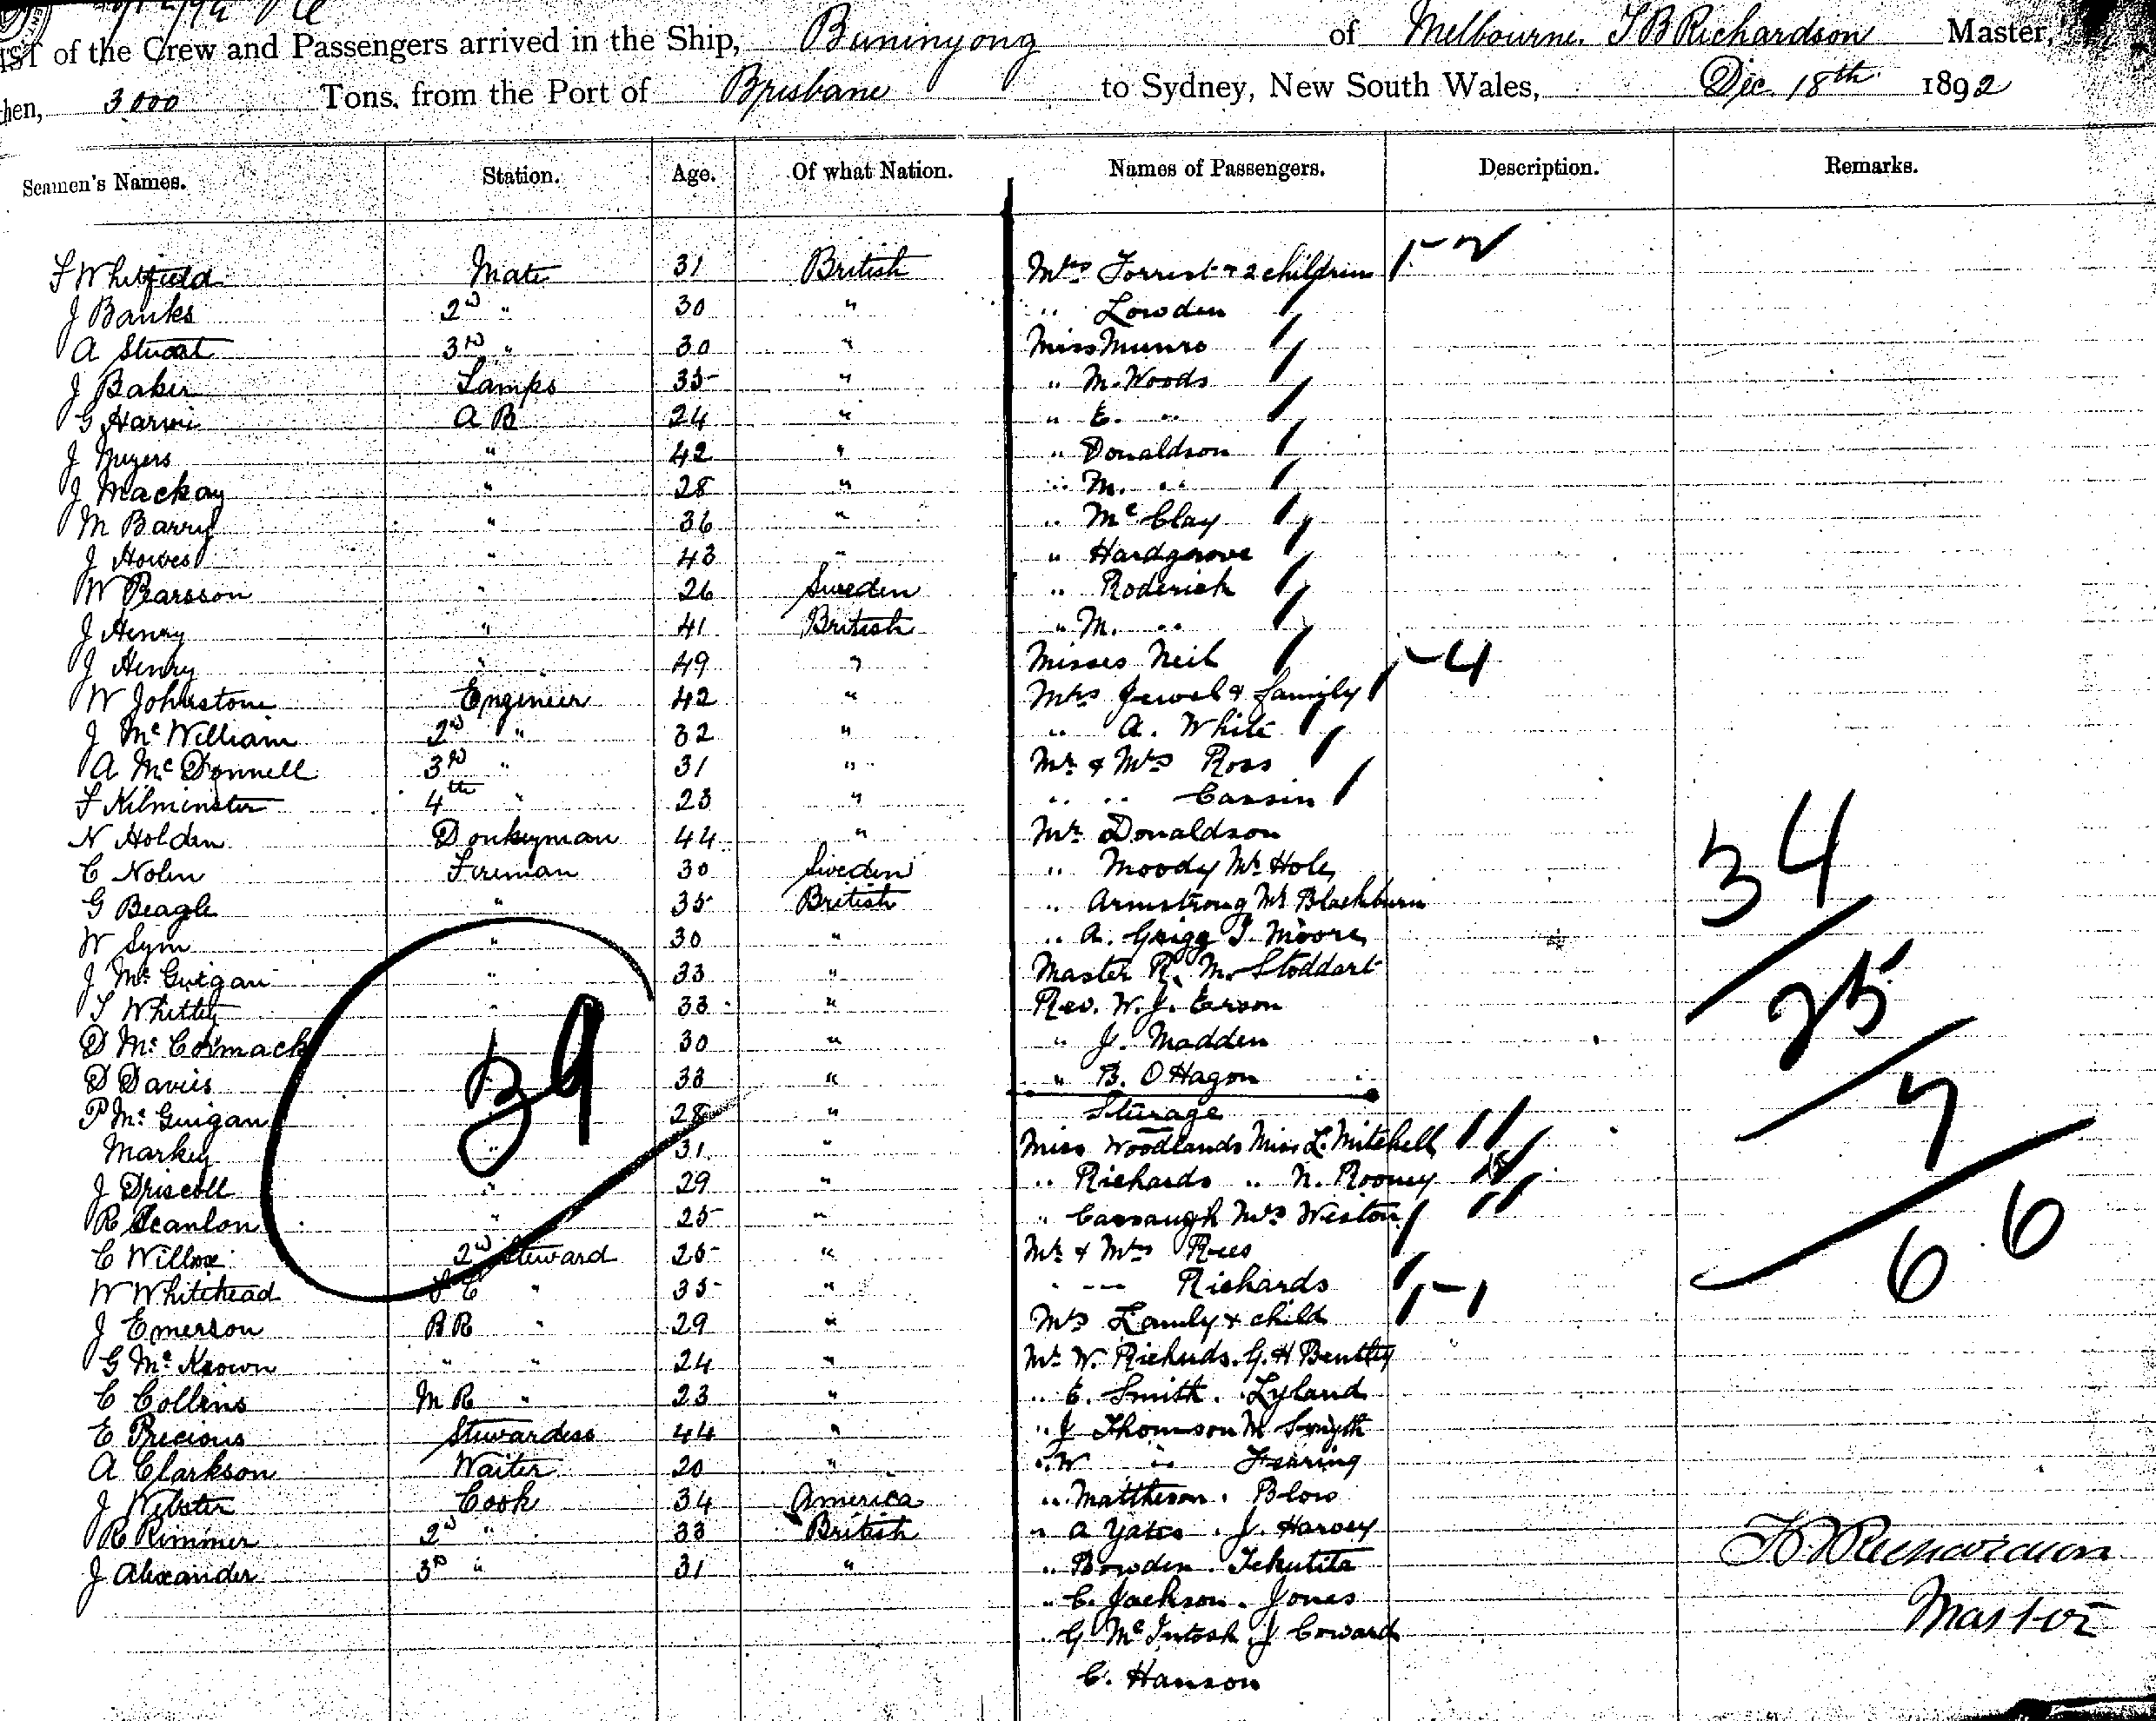 IST of the Crew and Passengers arrived in the Ship, Buninyong of Melbourne. T B Richardson Master,
hen, 3000 Tons, from the Port of Brisbane to Sydney, New South Wales, Dec. 18th 1892
Seamen's Names. Station. Age. Of what Nation. Names of Passengers. Description. Remarks.
F Whitfield Mate 31 British Mrs Forrest & 2 children 1-2
J Banks 2nd " 30 " " Lowden
A Stuart 3rd " 30 " Miss Munro
J Baker Lamps 35 " " M. Woods
G Harvie A B 24 " " E. "
J Myers " 42 " " Donaldson
J Mackay " 28 " " M. "
M Barry " 36 " " McClay
J Howes " 43 " " Hardgrove
W Pearsson " 26 Sweden " Roderick
J Henry " 41 British " M. "
J Henry " 49 " Misses Neil
W Johnstone Engineer 42 " Mrs Jewel & family 1-4
J McWilliam 2nd " 32 " " A. White
A McDonnell 3rd " 31 " Mr & Mrs Ross
F Kilminster 4th " 23 " " " Cassin
N Holden Donkeyman 44 " Mr Donaldson
C Nolin Fireman 30 Sweden " Moody Mr Hole
G Beagle " 35 British " Armstrong Mr Blackburn
W Sym " 30 " " A. Grigg T. Moore
J McGuigan " 33 " Master R. M. Stoddart
Whitty " 33 " Rev. W. J.
D McCormack 30 " " J. Madden
D Davies 33 " " B. O Hagon
P McGuigan 28 " Steerage
Markey " 31 " Miss Woodlands Miss L. Mitchell
J Driscoll " 29 " " Richards " N. Rooney
R Scanlon " 25 " " Cavanagh Mrs Weston
C Willox 2nd Steward 25 " Mr & Mrs Rees
W Whitehead " 35 " " " Richards
J Emerson B R " 29 " Mrs & child 1-1
G McKeown " " 24 " Mr W. Richards. G. H Bentley
C Collins M R " 23 " " E. Smith. Lyland
E Precious Stewardess 44 " " J Thomson M Smyth
A Clarkson Waiter 20 " " W " Fearing
J Webster Cook 34 America " Mattheson. Blow
R Rimmer 2nd " 33 British " A Yates. J. Harvey
J Alexander 3rd " 31 " " Bowden.
" C. Jackson. Jones
" G McIntosh. J Coward
C. Hanson
39
34
25
7
66
T B Richardson
Master